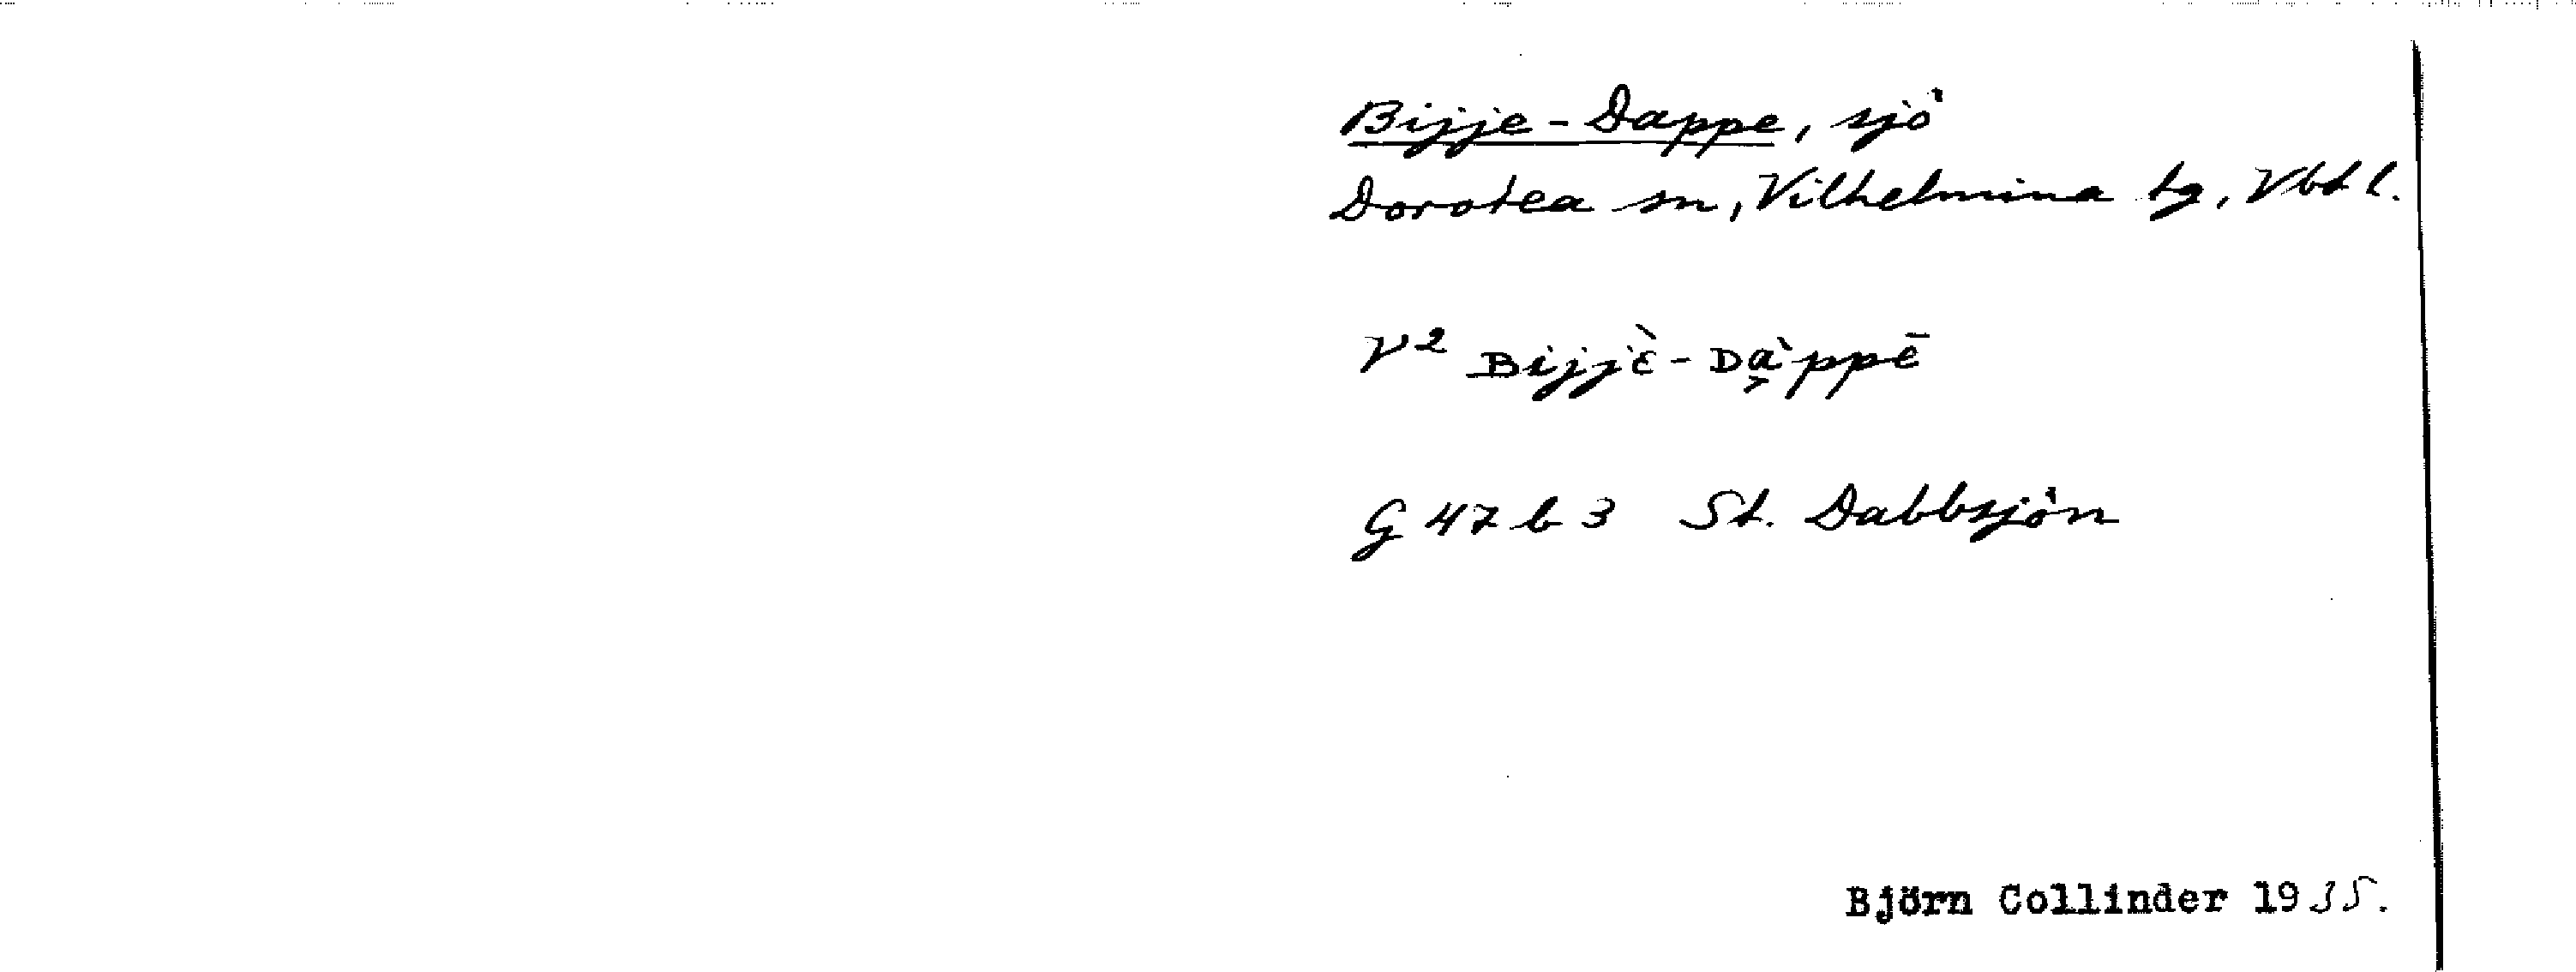 Bijje-Dappe, sjö
Dorotea sn, Vilhelmina tg, Vbt l.
V² Bijjὲ-Dà͕ppē
G 47 b 3 St. Dabbsjön
Björn Collinder 1935.